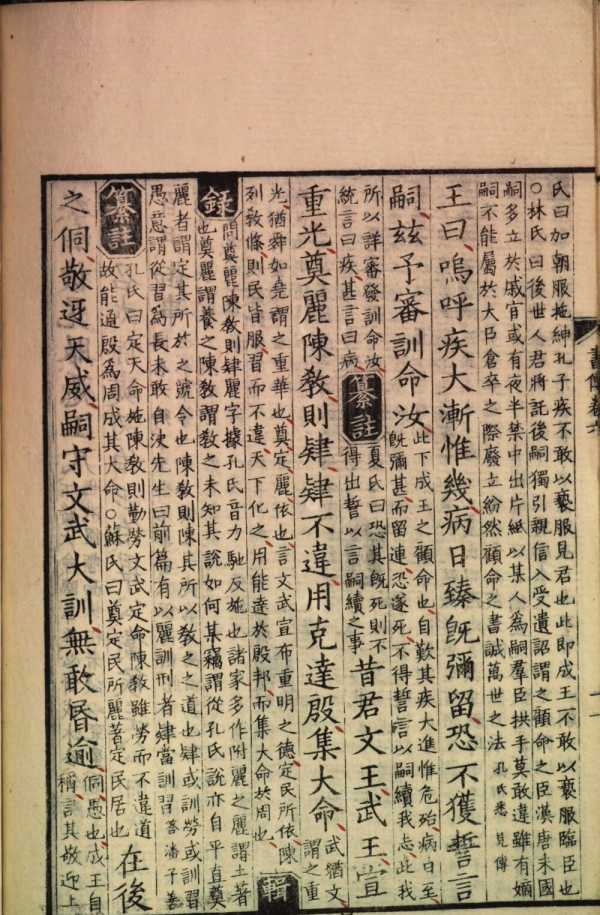 氏曰加朝服拖紳孔子疾不敢以褻服見君也此即成王不敢以褻服臨臣也
○林氏曰後世人君將託後嗣獨引親信入受遺詔謂之顧命之臣漢唐末國
嗣多立於戚宦或有夜半禁中出片紙以某人爲嗣羣臣拱手莫敢違雖有嫡
嗣不能屬於大臣倉卒之際廢立紛然顧命之書誠萬世之法孔氏悉見傳
王曰嗚呼疾大漸惟幾病日臻旣彌留恐不獲誓言
嗣茲予審訓命汝此下成王之顧命也自歎其疾大進惟危殆病日至
旣彌甚而留連恐遂死不得誓言以嗣續我志此我
所以詳審發訓命汝
統言曰疾甚言曰病
纂註
夏氏曰恐其旣死則不
得出誓以言嗣續之事
昔君文王武王宣
重光奠麗陳敎則肄肄不違用克達殷集大命武猶文
謂之重
光猶舜如堯謂之重華也奠定麗依也言文武宣布重明之德定民所依陳
列敎條則民皆服習而不違天下化之用能達於殷邦而集大命於周也
輯
錄
問奠麗陳敎則肄麗字據孔氏音力馳反施也諸家多作附麗之麗謂土著
也奠麗謂養之陳敎謂敎之未知其說如何某竊謂從孔氏說亦自平直奠
麗者謂定其所於之號令也陳敎則陳其所以敎之之道也肄或訓勞或訓習
愚意謂從習爲長未敢自決先生曰前篇有以麗訓刑者肄當訓習答潘子善
纂註
孔氏曰定天命施陳敎則勤勞文武定命陳敎雖勞而不違道
故能通殷爲周成其大命○蘇氏曰奠定民所麗著定民居也
在後
之侗敬迓天威嗣守文武大訓無敢昏逾侗愚也成王自
稱言其敬迎上
書傳卷六